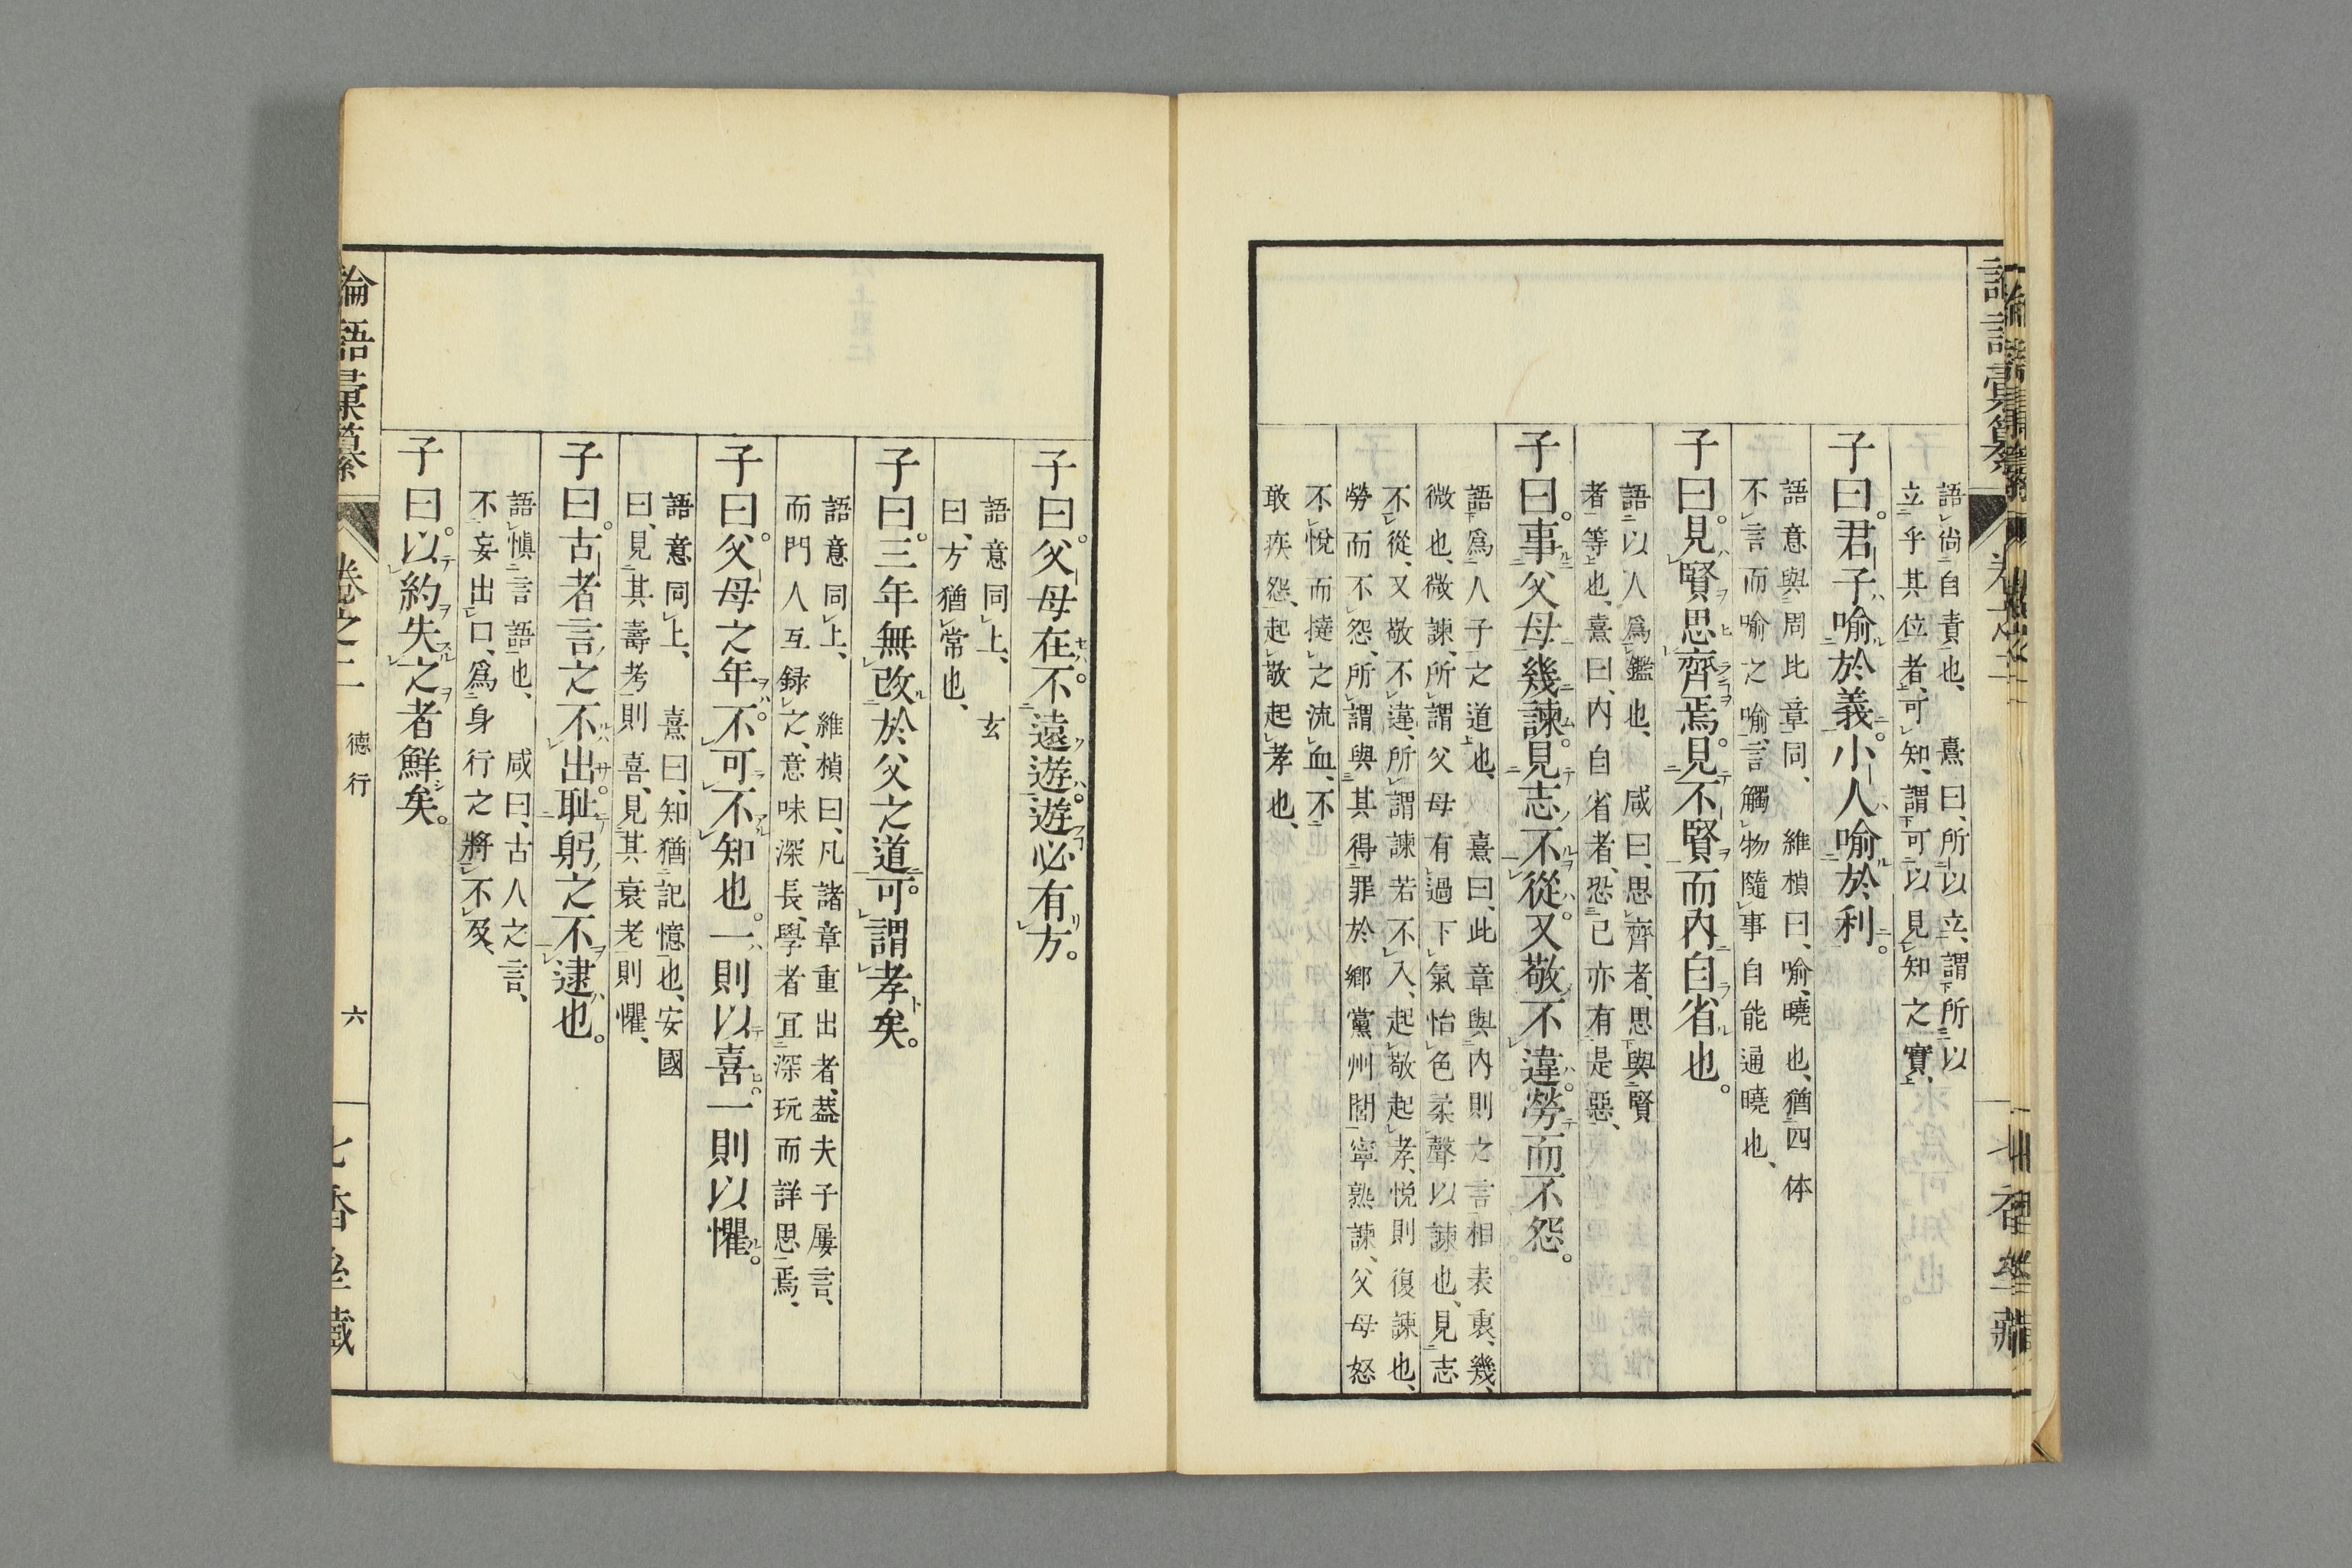 語尚自責也、熹曰、所以立、謂所以
立乎其位者、可知、謂可以見知之實、
子曰。君子喻於義。小人喻於利。
語意與周比章同、維楨曰、喻、曉也、猶四体
不言而喻之喻、言觸物隨事自能通曉也、
子曰。見賢思齊焉。見不賢而內自省也。
語以人爲鑑也、咸曰、思齊者、思與賢
者等也、熹曰、內自省者、恐己亦有是惡、
子曰。事父母幾諫。見志不從。又敬不違。勞而不怨。
語爲人子之道也、熹曰、此章與內則之言相表裏、幾、
微也、微諫、所謂父母有過下氣怡色柔聲以諫也、見志
不從、又敬不違、所謂諫若不入、起敬起孝、悅則復諫也、
勞而不怨、所謂與其得罪於鄉黨州閭寧熟諫、父母怒
不悅而撻之流血、不
敢疾怨、起敬起孝也、
子曰。父母在。不遠遊。遊必有方。
語意同上、玄
曰、方猶常也、
子曰。三年無改於父之道。可謂孝矣。
語意同上、維楨曰、凡諸章重出者、蓋夫子屢言、
而門人互録之、意味深長、學者冝深玩而詳思焉、
子曰。父母之年。不可不知也。一則以喜。一則以懼。
語意同上、熹曰、知猶記憶也、安國
曰、見其壽考則喜、見其衰老則懼、
子曰。古者言之不出。耻躬之不逮也。
語愼言語也、咸曰、古人之言、
不妄出口、爲身行之將不及、
子曰。以約失之者鮮矣。
論語彙纂 卷之二 德行 六 七香齋藏